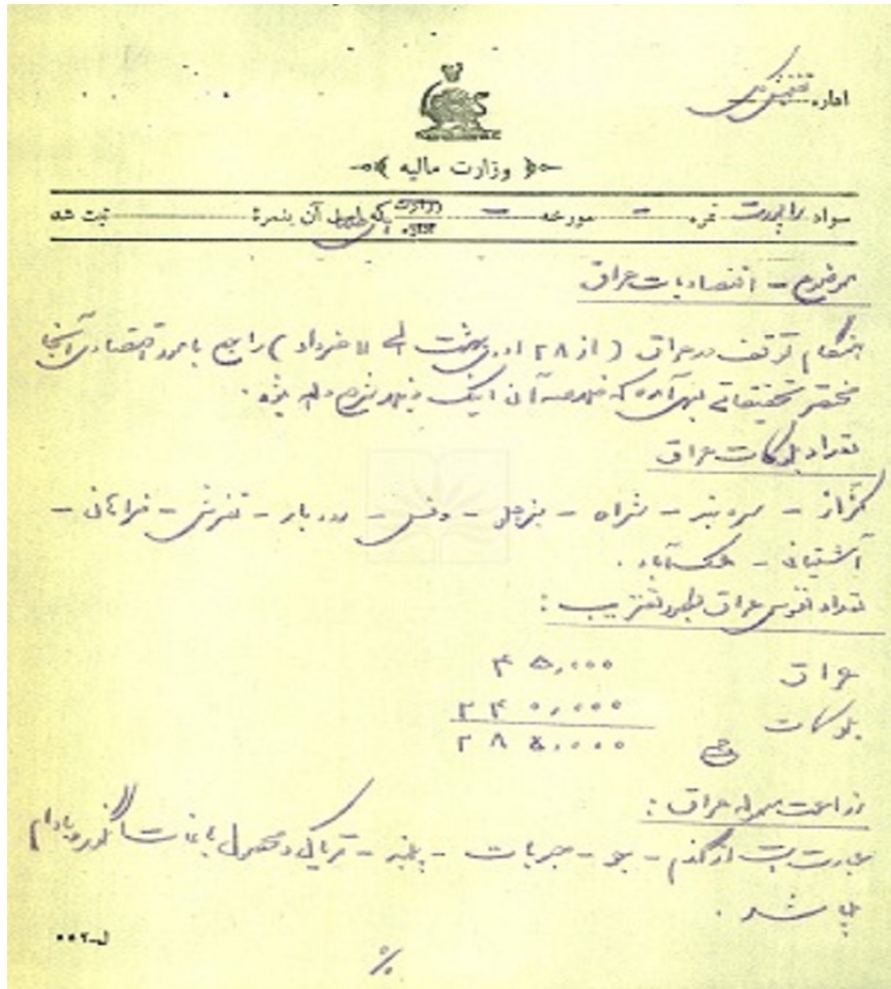 اداره تفتیش کل
وزارت مالیه
سواد راپورت نمره مورخه وزارت مالیه که اصل آن بنمرهٔ ثبت شده
موضوع - اقتصادیات عراق
هنگام توقف در عراق (از ۲۸ اردیبهشت الی ۱۱ خرداد) راجع بامور اقتصادی آنجا
مختصر تحقیقاتی بعمل آمده که خلاصه آن اینک
تعداد بلوکات عراق
کزاز - سربند - شراه - بزچلو - وفس - رودبار - تفرش - فراهان -
آشتیان - مشک‌آباد .
تعداد نفوس عراق بطور تقریب :
عراق ۴۵,۰۰۰
بلوکات ۲۴۰,۰۰۰
۲۸۵,۰۰۰
زراعت معموله عراق :
عبارت است از گندم - جو - حبوبات - پنبه - تریاک و محصول باغات انگور و بادام
می باشد .
ل-۰۰۲